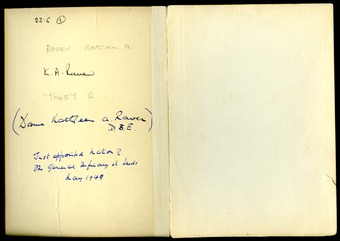 22.6 ①
RAVEN KATHLEEN A
K.A. Raven
76657 A
(Dame Kathleen A Raven)
D.B.E.
Just appointed Matron of
The General Infirmary at Leeds
May 1949